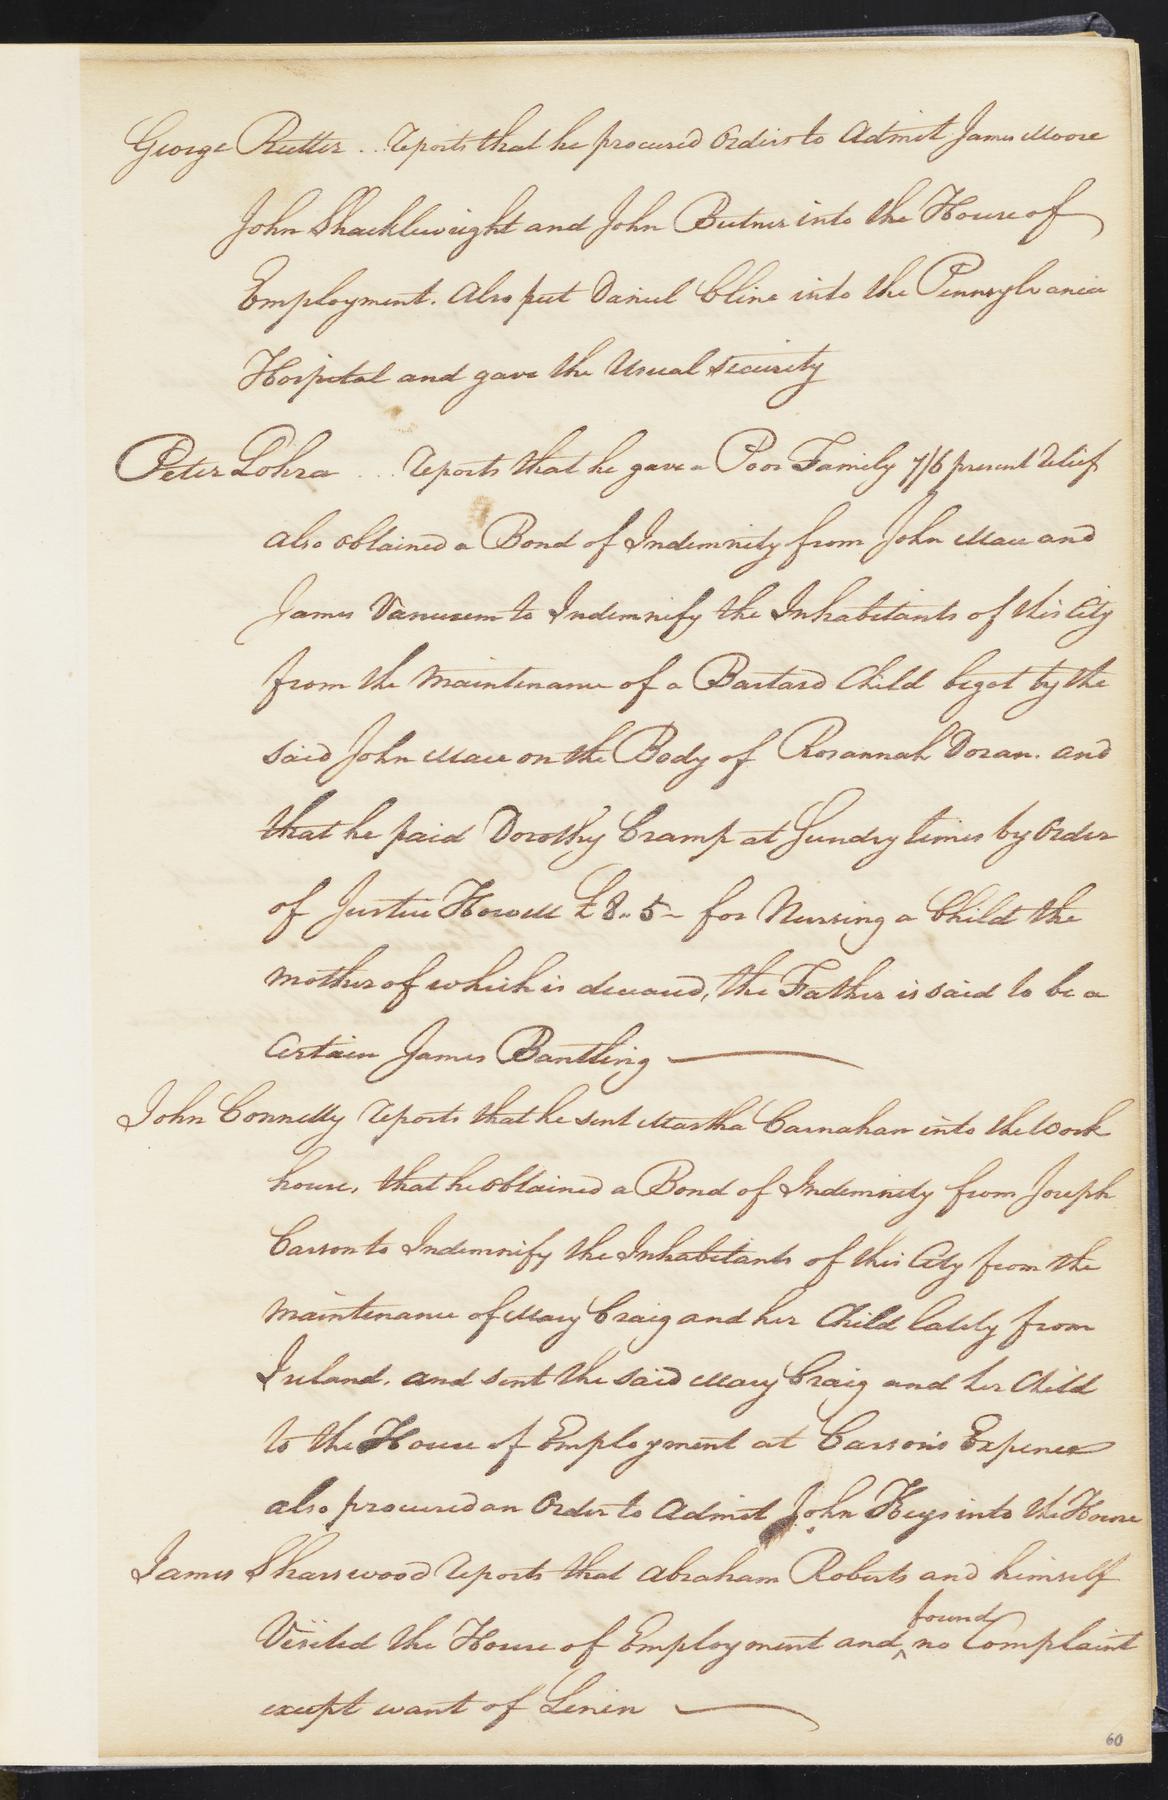 George Rutter .. reports that he procured Orders to Admit James Moore
John Shacklewight and John Butner into the House of
Employment. Also put Daniel Cline into the Pennsylvania
Hospital and gave the Usual security
Peter Lohra ... reports that he gave a Poor Family 7/6 present relief
also obtained a Bond of Indemnity from John Mace and
James Vanuxem to Indemnify the Inhabitants of this City
from the Maintenance of a Bastard Child begot by the
said John Mace on the Body of Rosannah Doran. and
that he paid Dorothy Cramp at Sundry times by Order
of Justice Howell £8..5- for Nursing a Child the
Mother of which is deceased, the Father is said to be a
Certain James Bantling
John Connelly reports that he sent Martha Carnahan into the Work
house, that he obtained a Bond of Indemnity from Joseph
Carson to Indemnify the Inhabitants of this City from the
Maintenance of Mary Craig and her Child lately from
Ireland. and sent the said Mary Craig and her Child
to the House of Employment at Carson's Expence
also procured an Order to Admit John Keys into the House
James Sharswood reports that Abraham Roberts and himself
found
Visited the House of Employment and ^ no Complaint
except want of Linin
60